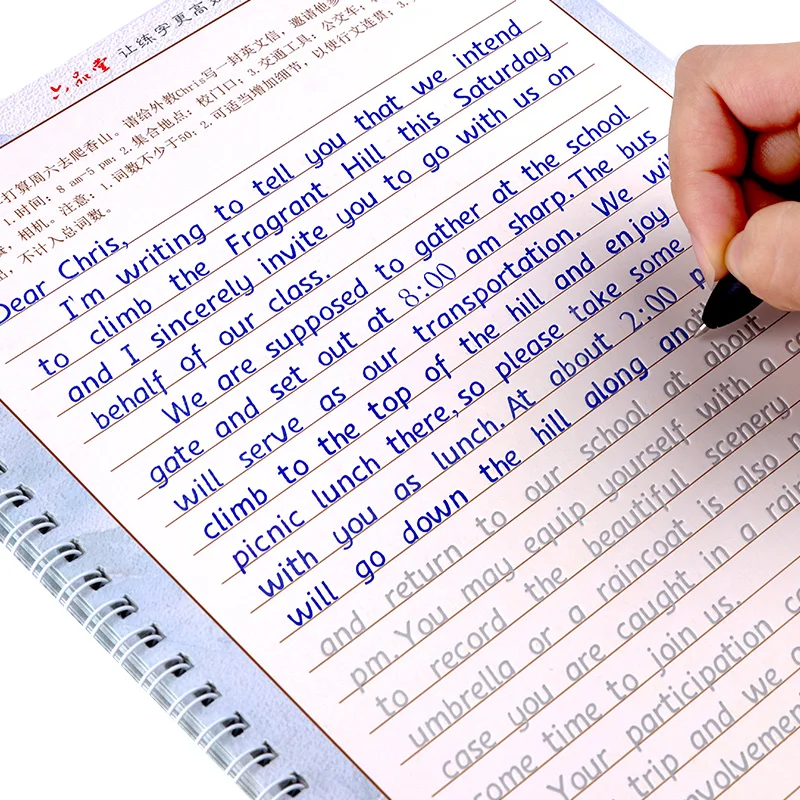 六品堂 让练字更高效
打算周六去爬香山。请给外教Chris写一封英文信，邀请他
1.时间：8 am-5 pm；2.集合地点：校门口；3.交通工具：公交车；
相机。注意：1.词数不少于50；2.可适当增加细节，以使行文连贯；3.
不计入总词数。
Dear Chris,
I'm writing to tell you that we intend
to climb the Fragrant Hill this Saturday
and I sincerely invite you to go with us on
behalf of our class.
We are supposed to gather at the school
gate and set out at 8:00 am sharp. The bus
will serve as our transportation. We wil
climb to the top of the hill and enjoy
picnic lunch there, so please take some
with you as lunch. At about 2:00 p
will go down the hill along anot
and return to our school at about
pm. You may equip yourself with a ca
to record the beautiful scenery
umbrella or a raincoat is also n
case you are caught in a rain
some time to join us.
Your participation ca
trip and we a
nvolvemen